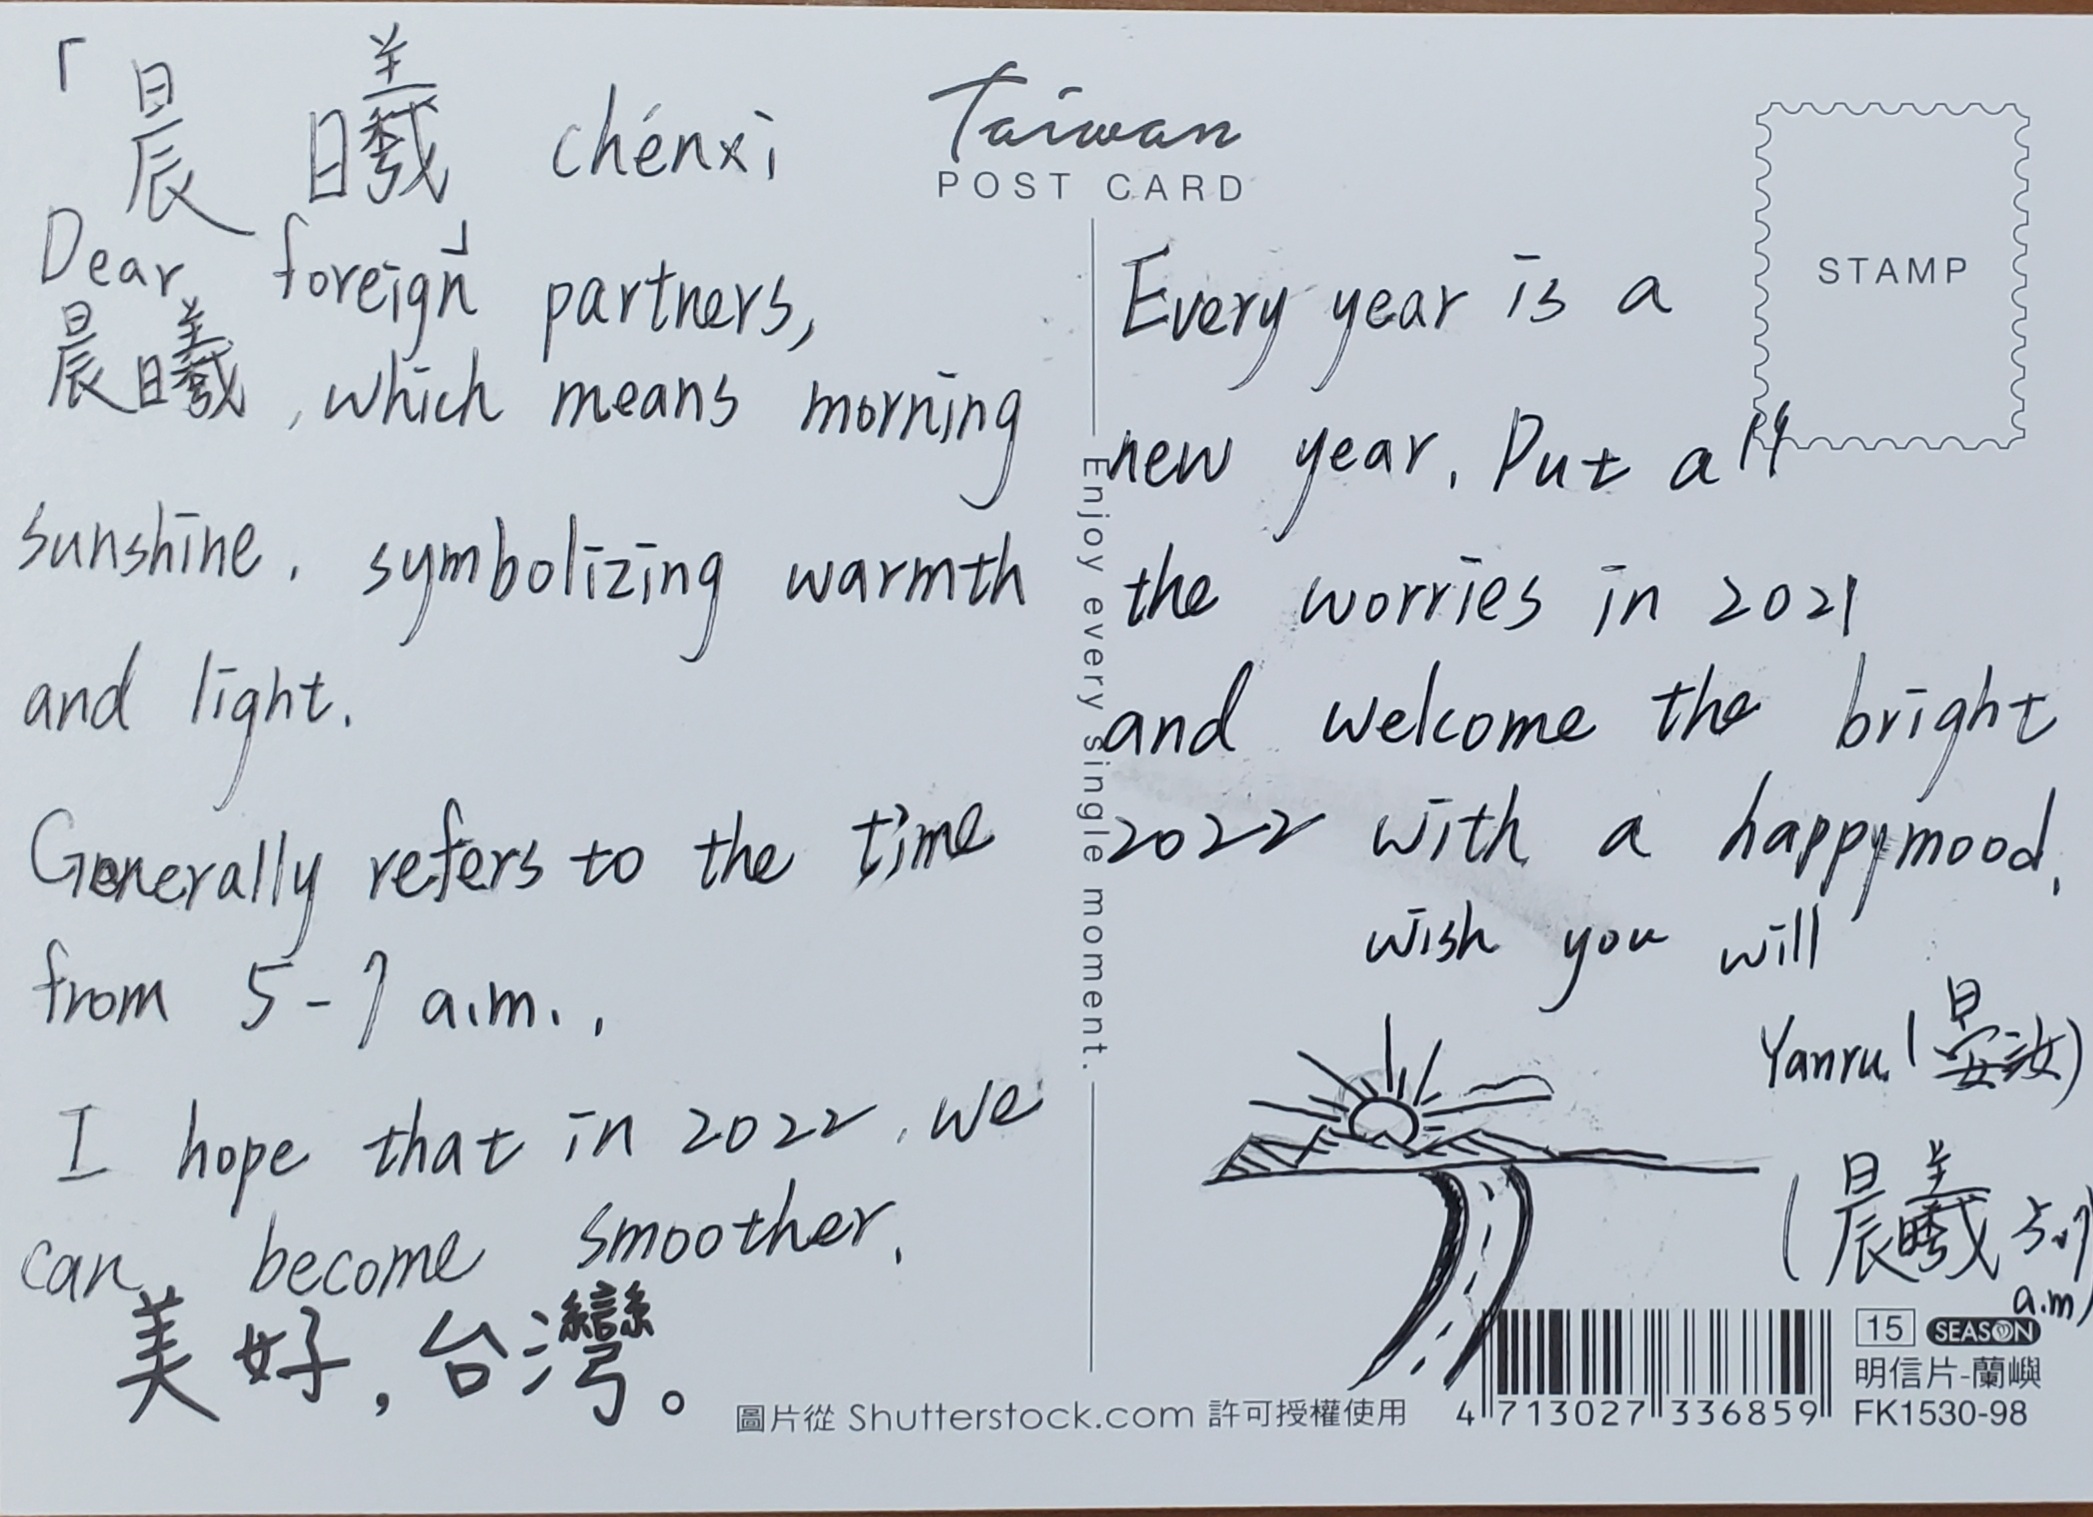 「晨曦 chénxi」
Dear foreign partners,
晨曦, which means morning
sunshine. symbolizing warmth
and light.
Generally refers to the time
from 5-7 a.m..,
I hope that in 2022, we
can become smoother.
美好，台灣。
Taiwan
POST CARD
STAMP
Enjoy every single moment.
Every year is a
new year. Put all
the worries in 2021
and welcome the bright
2022 with a happy mood.
wish you will
Yanru (晏汝)
(晨曦 5-7
a.m)
圖片從 Shutterstock.com 許可授權使用
4 713027 336859
15 SEASON
明信片-蘭嶼
FK1530-98